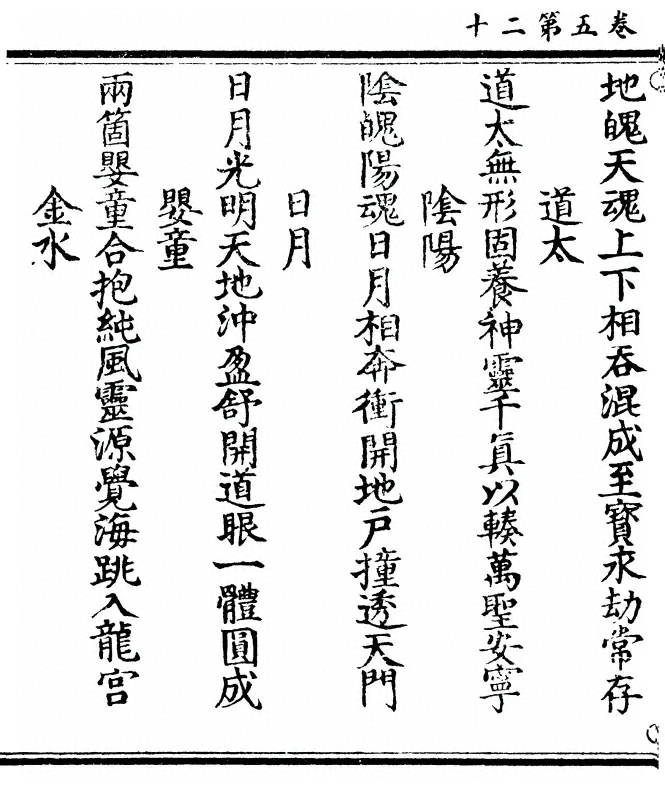 卷五第二十
地魄天魂上下相吞混成至寶永劫常存
道太
道太無形固養神靈千眞以輳萬聖安寧
陰陽
陰魄陽魂日月相奔衝開地戶撞透天門
日月
日月光明天地沖盈舒開道眼一體圓成
嬰童
兩箇嬰童合抱純風靈源覺海跳入龍宮
金水